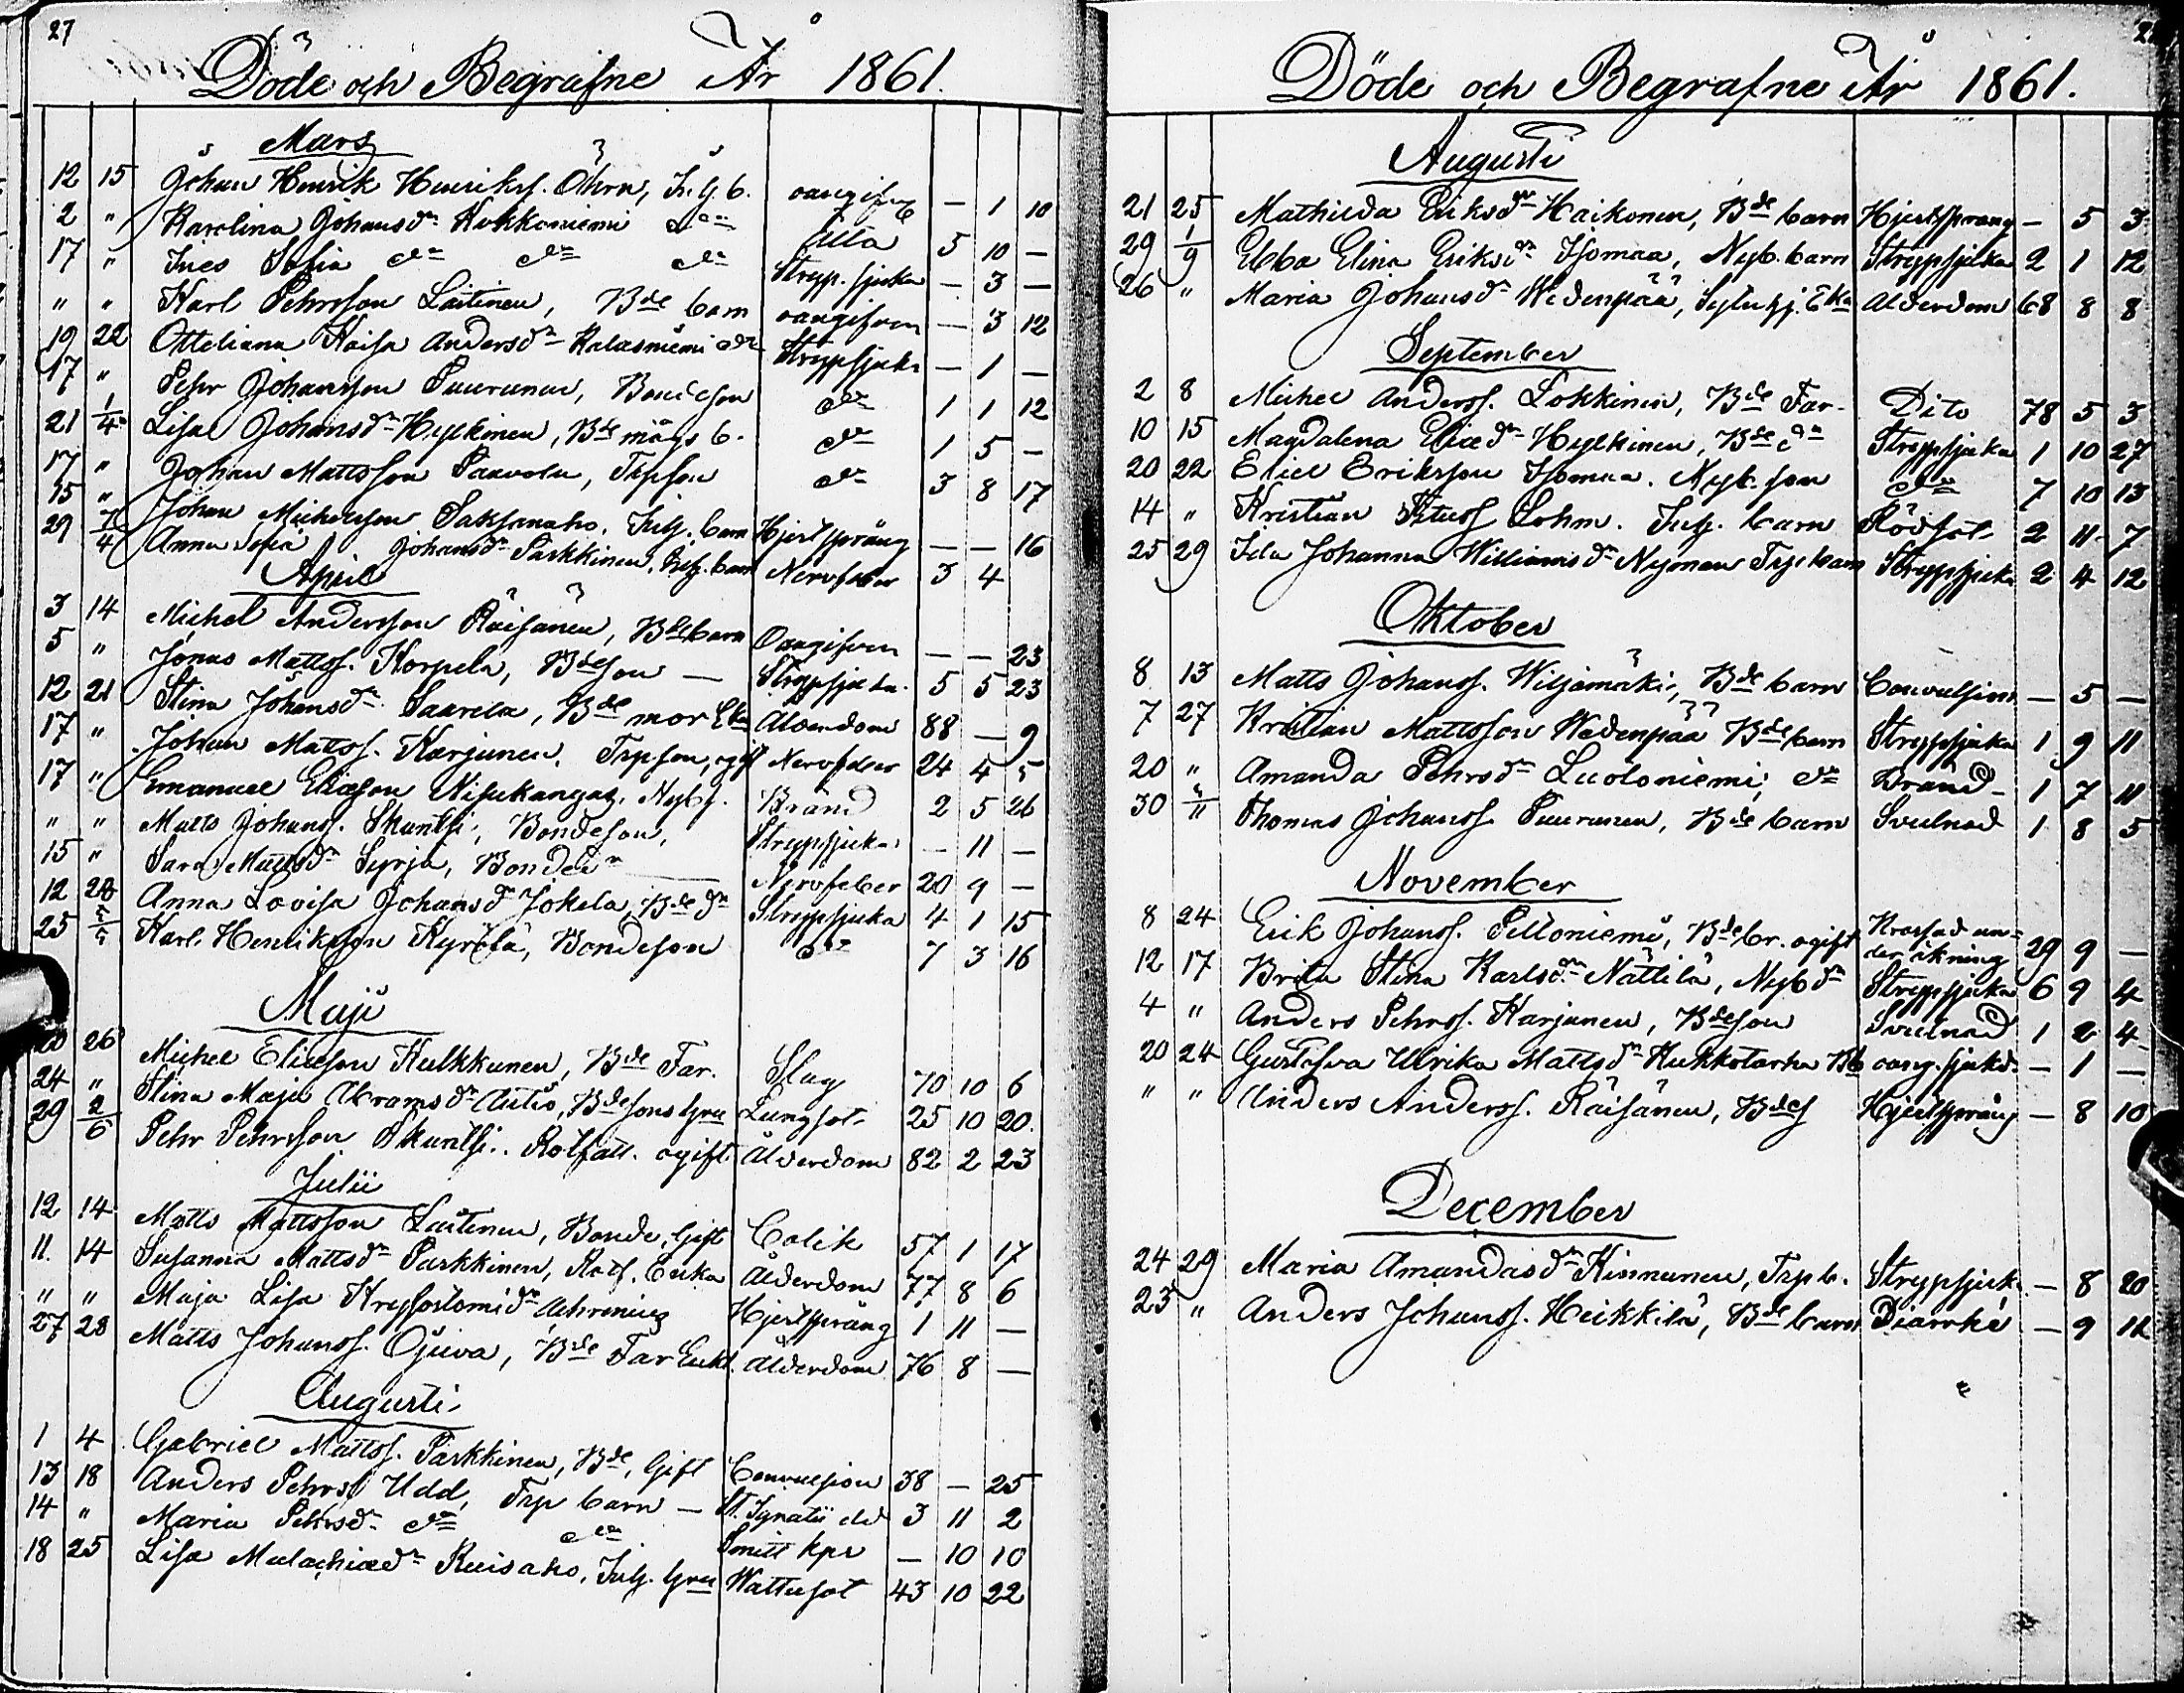 27
Döde och Begrafne År 1861.
Mars
12 15 Johan Henrik Henrikss. Öhrn, Inh. b. oangifv. — 1 10
2 " Karolina Johansdr Kokkoniemi dr dito 5 10 —
17 " Ines Sofia dr dr dr Strypsjuka — 3 —
" " Karl Pehrsson Laitinen, Bde barn oangifven — 3 12
19 22 Otteliana Kaisa Andersdr Kalasniemi dr Strypsjuka — 1 —
17 " Pehr Johansson Puurunen, Bondeson dr 1 1 12
21 1/4 Lisa Johansdr Hyckinen, Bde mågs b. dr 1 5 —
17 " Johan Mattsson Paavola, Trpson dr 3 8 17
15 " Johan Michelsson Saksanaho, Inh. barn Hjertspräng — — 16
29 7/4 Anna Sofia Johansdr Parkkinen, Inh. barn Nervfeber 3 4
April
3 14 Michel Andersson Räisänen, Bde barn Oangifven — — 23
5 " Jonas Mattss. Korpela, Bdeson — Strypsjuka 5 5 23
12 21 Stina Johansdr Saarela, Bde mor Eka Ålderdom 88 — 9
17 " Johan Mattss. Karjunen, Trpson, ogift Nervfeber 24 4 5
17 " Emanuel Eliæson Niskakangas, Nybs. Brånd 2 5 26
" " Matts Johanss. Skantsi, Bondeson, Strypsjuka — 11 —
15 " Sara Mattsdr Syrjä, Bondedr Nervfeber 20 9 —
12 28 Anna Lovisa Johansdr Jokela, Bde dr Strypsjuka 4 1 15
25 5/5 Karl Henriksson Kyrölä, Bondeson dr 7 3 16
Maji
20 26 Michel Eliæson Kulkkunen, Bde Far. Slag 70 10 6
24 " Stina Maja Abramsdr Autio, Bdesons hru Lungsot 25 10 20.
29 2/6 Pehr Pehrsson Skuntsi. Rotfatt. ogift Ålderdom 82 2 23
Julii
12 14 Matts Mattsson Laitinen, Bonde, Gift Colik 57 1 17
11. 14 Susanna Mattsdr Parkkinen, Rotf. Enka Ålderdom 77 8 6
" " Maja Lisa Krysostomidr Achrenius Hjertspräng 1 11 —
27 28 Matts Johanss. Ojuva, Bde Far Enkl. Ålderdom 76 8 —
Augusti
1 4 Gabriel Mattss. Parkkinen, Bde, Gift Convulsion 38 — 25
13 18 Anders Pehrss. Udd, Trp barn — St. Ignatii eld 3 11 2
14 " Maria Pehrsdr dr dr Smitt kpr — 10 10
18 25 Lisa Malachiædr Ruisaho, Inh. hru Wattusot 43 10 22
Döde och Begrafne År 1861.
Augusti
21 25 Mathilda Eriksdr Haikonen, Bde barn Hjertspräng — 5 3
29 1/9 Ebba Elina Eriksdr Isomaa, Nyb. barn Strypsjuka 2 1 12
26 " Maria Johansdr Wedenpää, Eka Ålderdom 68 8 8
September
2 8 Michel Anderss. Lokkinen, Bde Far. Dito 78 5 3
10 15 Magdalena Eliædr Hyckinen, Bde dr Strypsjuka 1 10 27
20 22 Eliel Eriksson Isomaa. Nyb. son dr 7 10 13
14 " Kristian Lohm. Inh. barn Rödsot 2 11 7
25 29 Ida Johanna Williamsdr Nyman Trp barn Strypsjuka 2 4 12
Oktober
8 13 Matts Johanss. Wiljamäki, Bde barn Convulsion — 5 —
7 27 Kristian Mattsson Wedenpää Bde barn Strypsjuka 1 9 11
20 " Amanda Pehrsdr Luoloniemi, dr Brånd 1 7 11
30 3/11 Thomas Johanss. Puurunen, Bde barn Svulnad 1 8 5
November
8 24 Erik Johanss. Peltoniemi, Bde br. ogift Krossad un-
der åkning 29 9 —
12 17 Brita Stina Karlsdr Nättilä, Nyb dr Strypsjuka 6 9 4
4 " Anders Pehrss. Karjunen, Bdeson Svulnad 1 2 4
20 24 Gustafva Ulrika Mattsdr Kukkotarha Bb oang. sjukd. — 1 —
" " Anders Anderss. Räisänen, Bdes Hjertspräng — 8 10
December
24 29 Maria Amandasdr Kinnunen, Trp b. Strypsjuk. — 8 20
23 " Anders Johanss. Heikkilä, Bde barn Diarrhé — 9 12